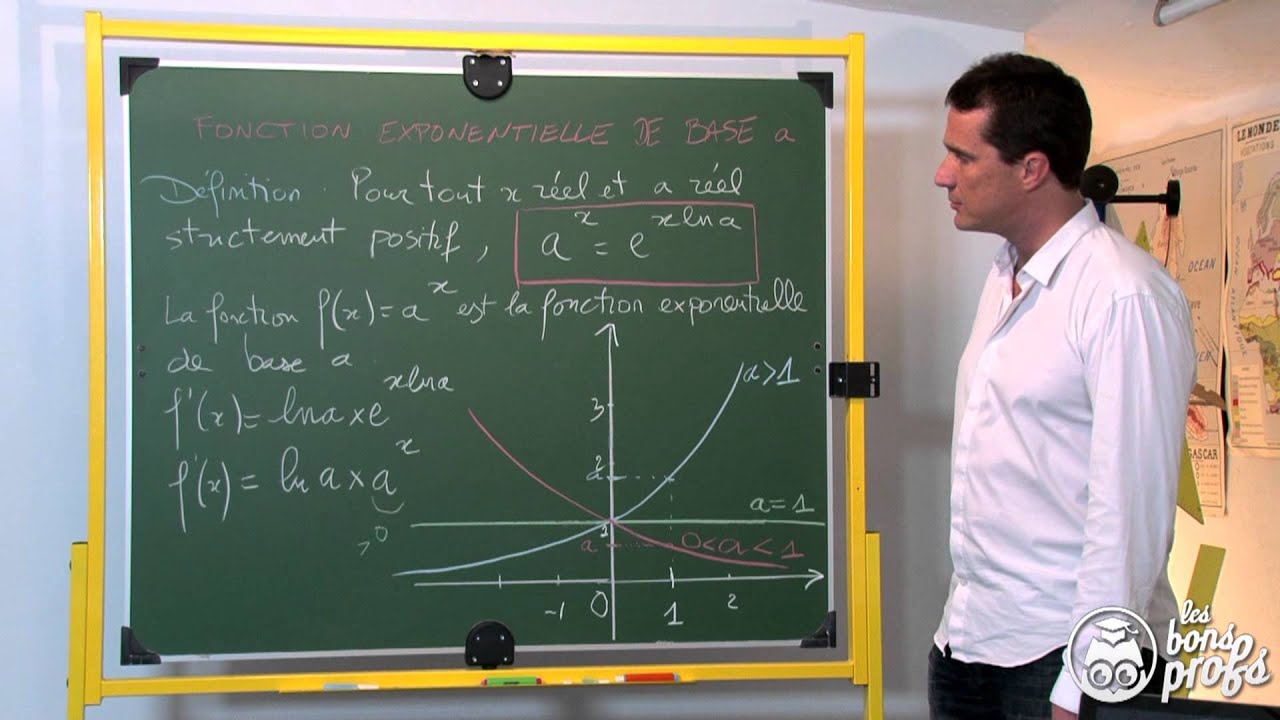 FONCTION EXPONENTIELLE DE BASE a
Définition. Pour tout x réel et a réel
strictement positif, a^x = e^(x ln a)
La fonction f(x) = a^x est la fonction exponentielle
de base a
f'(x) = ln a × e^(x ln a)
f'(x) = ln a × a^x
> 0
a > 1
3
2
a
a = 1
1
a
0 < a < 1
-1 0 1 2
LE MONDE
OCEAN
GASCAR
les
bons
profs